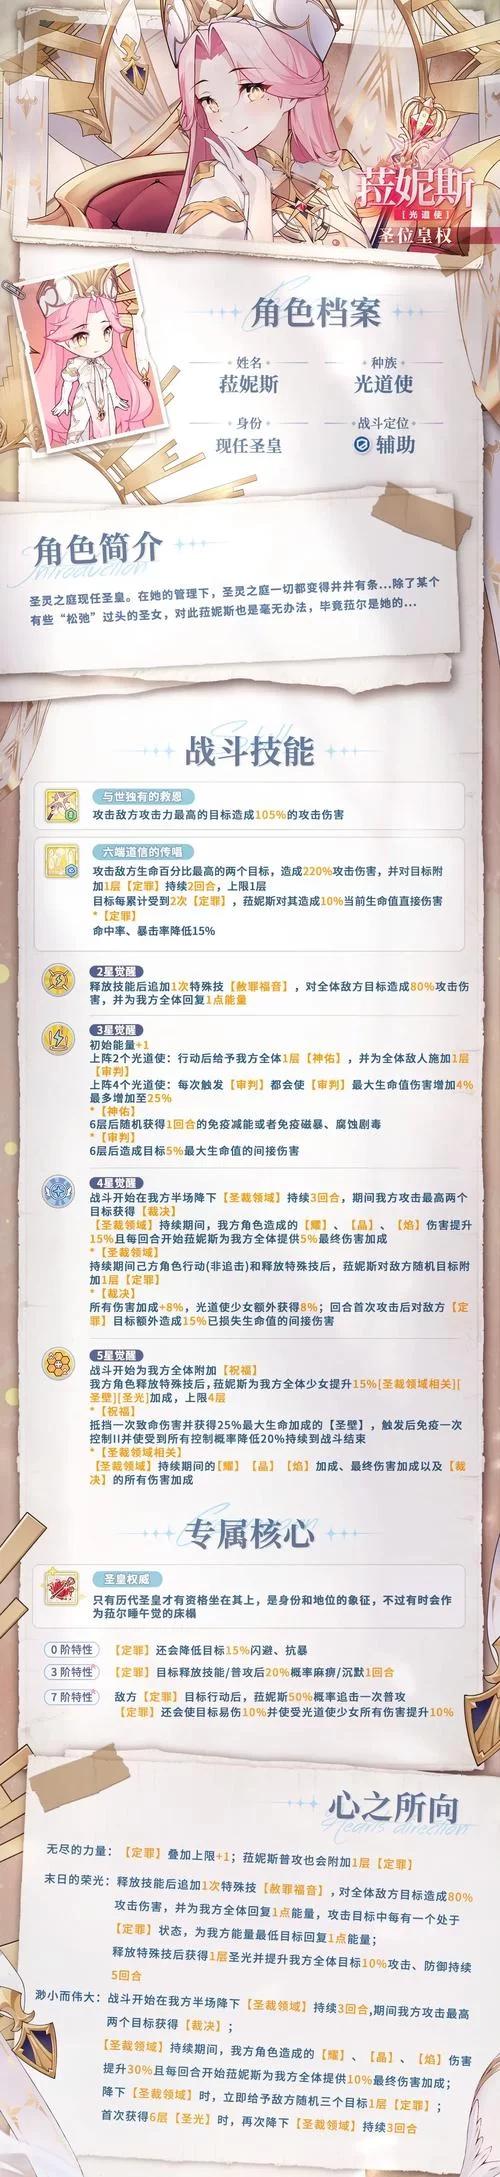 菈妮斯
[光道使]
圣位皇权
角色档案
姓名
菈妮斯
种族
光道使
身份
现任圣皇
战斗定位
辅助
角色简介
圣灵之庭现任圣皇。在她的管理下，圣灵之庭一切都变得井井有条...除了某个
有些“松弛”过头的圣女，对此菈妮斯也是毫无办法，毕竟菈尔是她的...
战斗技能
与世独有的救恩
攻击敌方攻击力最高的目标造成105%的攻击伤害
六端道信的传唱
攻击敌方生命百分比最高的两个目标，造成220%攻击伤害，并对目标附
加1层【定罪】持续2回合，上限1层
目标每累计受到2次【定罪】，菈妮斯对其造成10%当前生命值直接伤害
*【定罪】
命中率、暴击率降低15%
2星觉醒
释放技能后追加1次特殊技【赦罪福音】，对全体敌方目标造成80%攻击伤
害，并为我方全体回复1点能量
3星觉醒
初始能量+1
上阵2个光道使：行动后给予我方全体1层【神佑】，并为全体敌人施加1层
【审判】
上阵4个光道使：每次触发【审判】都会使【审判】最大生命值伤害增加4%
最多增加至25%
*【神佑】
6层后随机获得1回合的免疫减能或者免疫磁暴、腐蚀剧毒
*【审判】
6层后造成目标5%最大生命值的间接伤害
4星觉醒
战斗开始在我方半场降下【圣裁领域】持续3回合，期间我方攻击最高两个
目标获得【裁决】
【圣裁领域】持续期间，我方角色造成的【耀】、【晶】、【焰】伤害提升
15%且每回合开始菈妮斯为我方全体提供5%最终伤害加成
*【圣裁领域】
持续期间己方角色行动(非追击)和释放特殊技后，菈妮斯对敌方随机目标附
加1层【定罪】
*【裁决】
所有伤害加成+8%，光道使少女额外获得8%；回合首次攻击后对敌方【定
罪】目标额外造成15%已损失生命值的间接伤害
5星觉醒
战斗开始为我方全体附加【祝福】
我方角色释放特殊技后，菈妮斯为我方全体少女提升15%[圣裁领域相关][
圣壁][圣光]加成，上限4层
*【祝福】
抵挡一次致命伤害并获得25%最大生命加成的【圣壁】，触发后免疫一次
控制II并使受到所有控制概率降低20%持续到战斗结束
*【圣裁领域相关】
【圣裁领域】持续期间的【耀】【晶】【焰】加成、最终伤害加成以及【裁
决】的所有伤害加成
专属核心
圣皇权威
只有历代圣皇才有资格坐在其上，是身份和地位的象征，不过有时会作
为菈尔睡午觉的床榻
0 阶特性 【定罪】还会降低目标15%闪避、抗暴
3 阶特性 【定罪】目标释放技能/普攻后20%概率麻痹/沉默1回合
7 阶特性 敌方【定罪】目标行动后，菈妮斯50%概率追击一次普攻
【定罪】还会使目标易伤10%并使受光道使少女所有伤害提升10%
心之所向
Hearts direction
无尽的力量：【定罪】叠加上限+1；菈妮斯普攻也会附加1层【定罪】
末日的荣光：释放技能后追加1次特殊技【赦罪福音】，对全体敌方目标造成80%
攻击伤害，并为我方全体回复1点能量，攻击目标中每有一个处于
【定罪】状态，为我方能量最低目标回复1点能量；
释放特殊技后获得1层圣光并提升我方全体目标10%攻击、防御持续
5回合
渺小而伟大：战斗开始在我方半场降下【圣裁领域】持续3回合,期间我方攻击最高
两个目标获得【裁决】；
【圣裁领域】持续期间，我方角色造成的【耀】、【晶】、【焰】伤害
提升30%且每回合开始菈妮斯为我方全体提供10%最终伤害加成；
降下【圣裁领域】时，立即给予敌方随机三个目标1层【定罪】；
首次获得6层【圣光】时，再次降下【圣裁领域】持续3回合